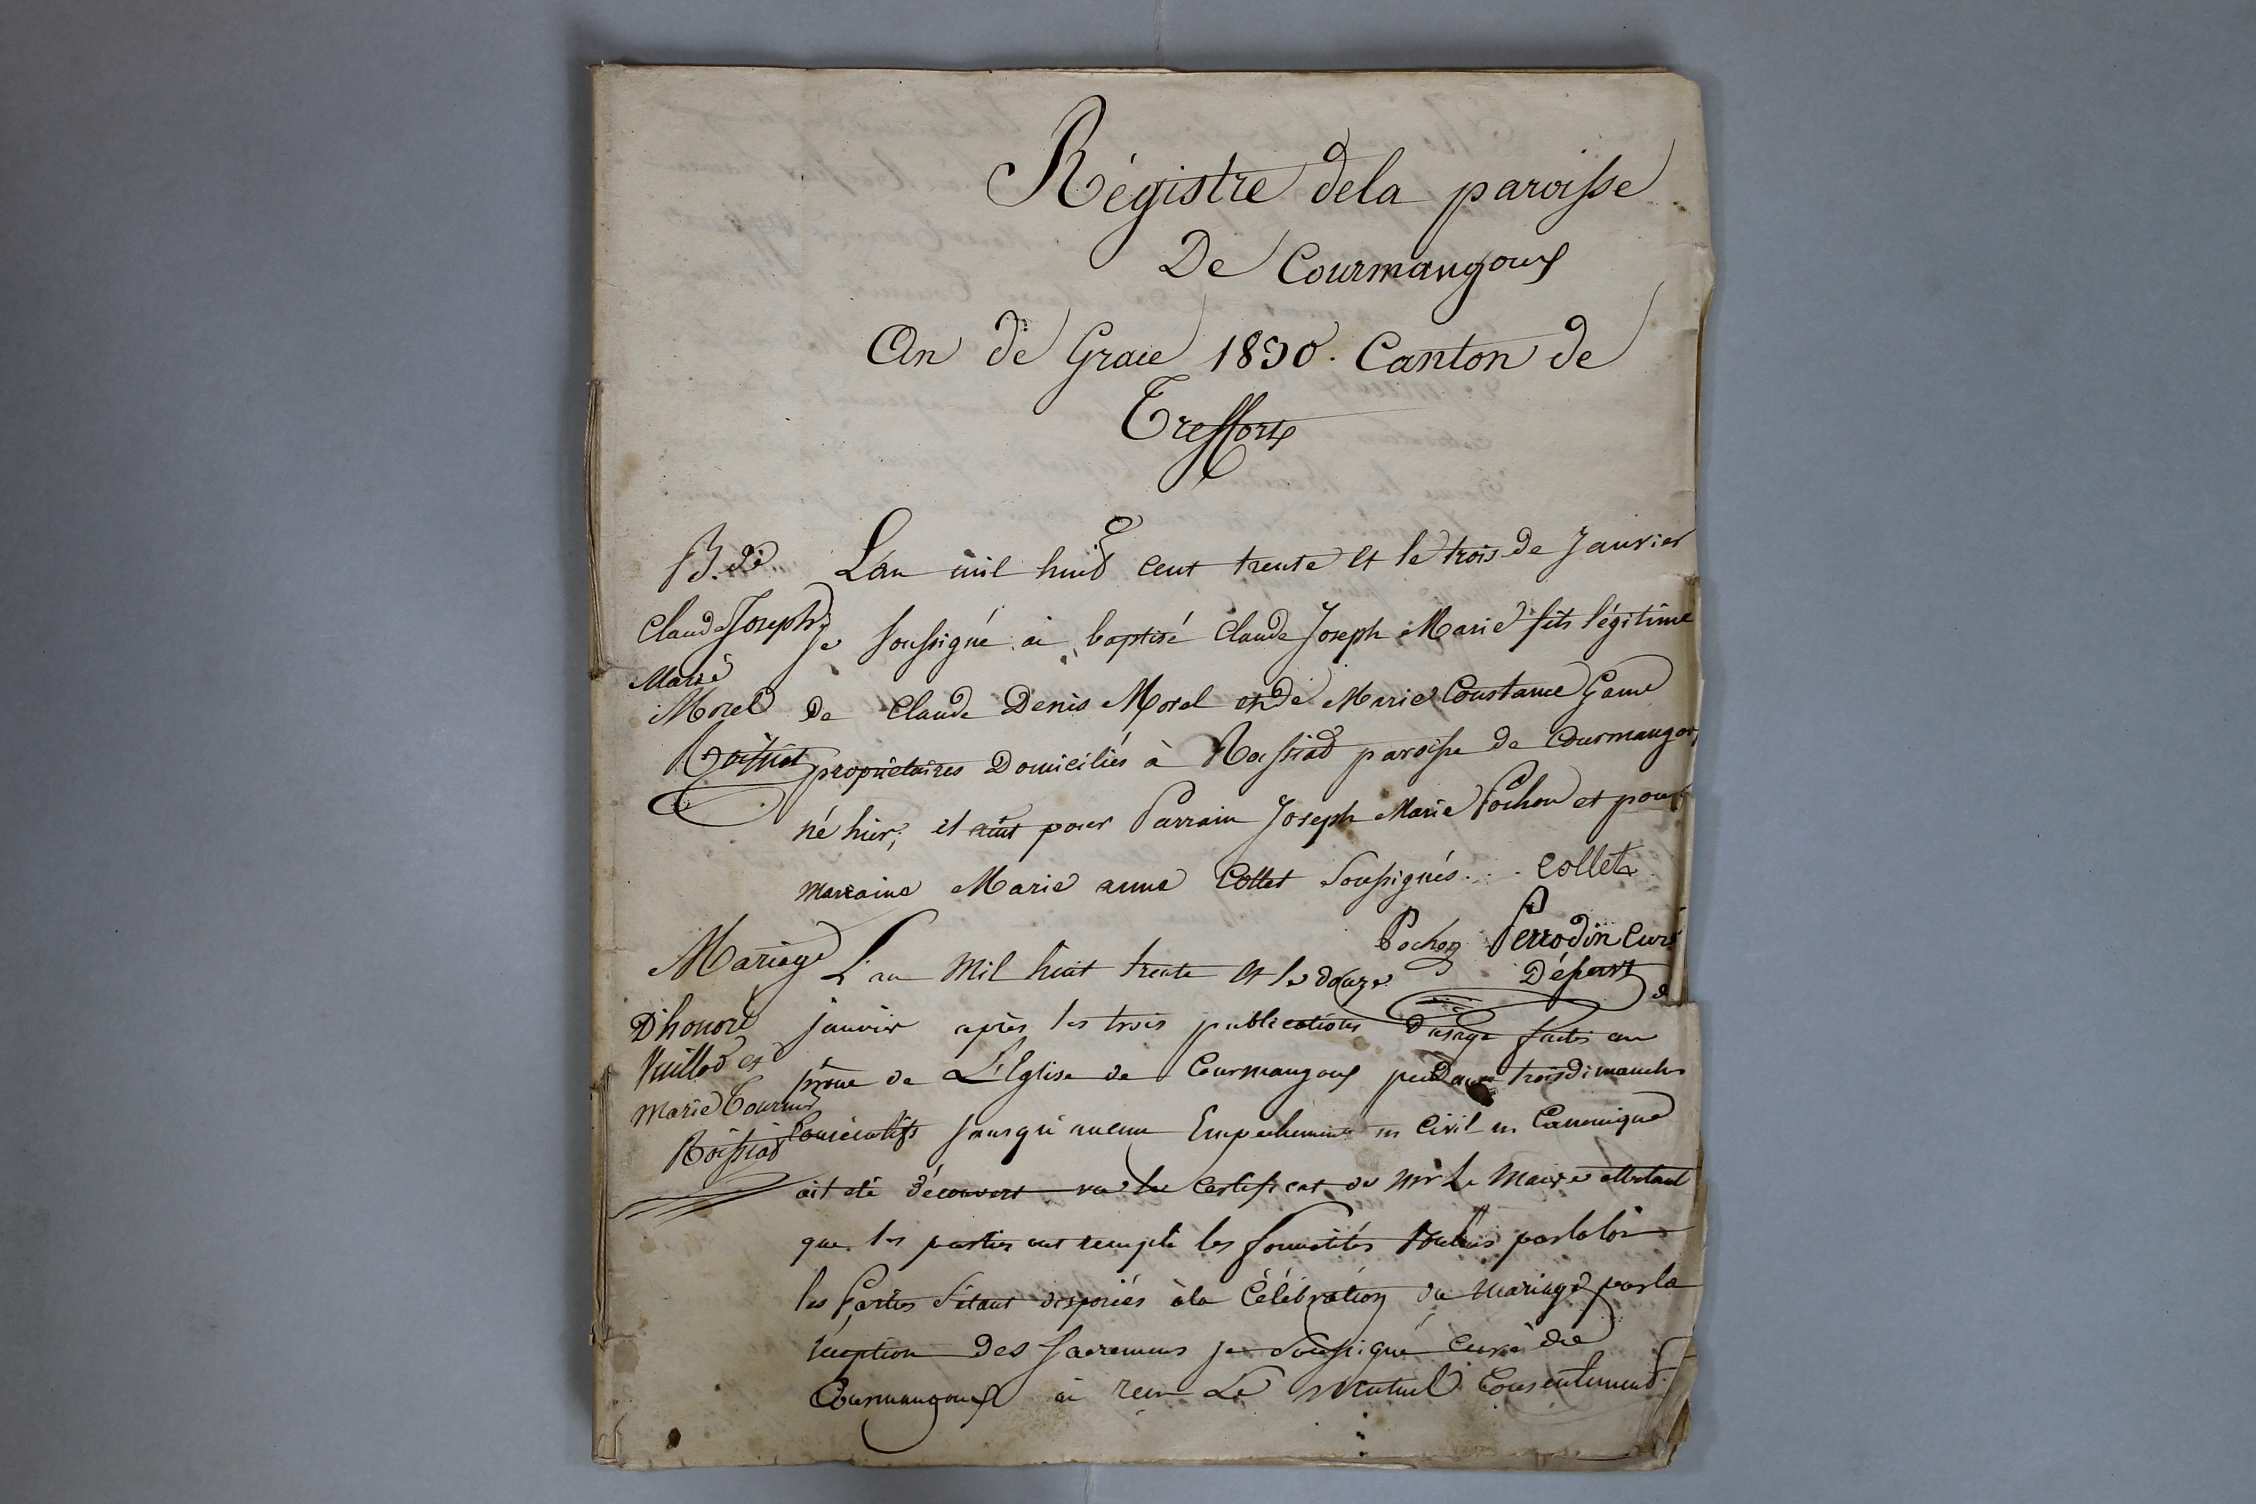 Régistre dela paroisse
De Courmangoux
An de Grace 1830. Canton de
Treffort
B. de
Claude Joseph
Marie
Morel
Roissiat
L'an mil huit cent trente et le trois de Janvier
je soussigné ai baptisé Claude Joseph Marie fils légitime
de Claude Denis Morel et de Marie Constance Game
propriétaires Domiciliés à Rossiat paroisse de Courmangoux
né hier; il a eu pour Parrain Joseph Marie Pochon et pour
marraine Marie anne Collet Soussignés... Collet
Pochon Perrodin Curé
Déservt
Mariage
D'honoré
Vuillod et
Marie Tournier
Roissiat
L'an Mil huit trente et le douze
janvier après les trois publications d'usage faites au
prône de L'Eglise de Courmangoux pendant trois dimanches
consécutifs sans qu'aucun Empechement ni Civil ni Canonique
ait été découvert vu le Certificat de Mr Le Maire attestant
que les parties ont rempli les formalités voulues par la loi
les Parties s'étant disposées à la Célébration du Mariage par la
réception des Sacremens je Soussigné curé de
Courmangoux ai reçu Le Mutuel Consentement